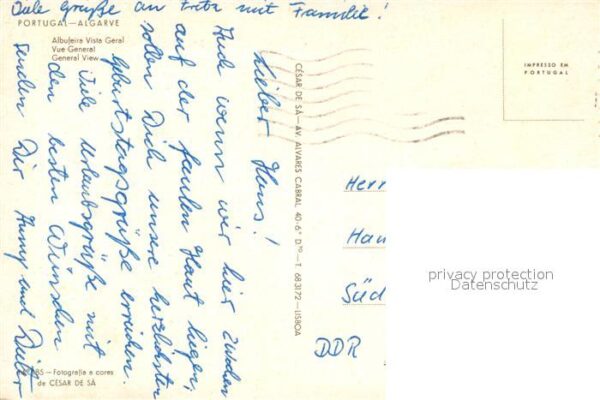 Viele Grüße an Fritz mit Familie!
PORTUGAL—ALGARVE
Albufeira Vista Geral
Vue General
General View
Lieber Hans!
Auch wenn wir hier zwischen
auf der faulen Haut liegen,
sollen Dich unsere herzlichsten
Geburtstagsgrüße erreichen.
Viele Urlaubsgrüße mit
den besten Wünschen
senden Dir Anny und Dieter
85 — Fotografia a cores
de CÉSAR DE SÁ
CÉSAR DE SÁ — AV. ALVARES CABRAL 40-6° D.to — T. 683172 — LISBOA
IMPRESSO EM
PORTUGAL
Herr
Han
Süd
DDR
privacy protection
Datenschutz